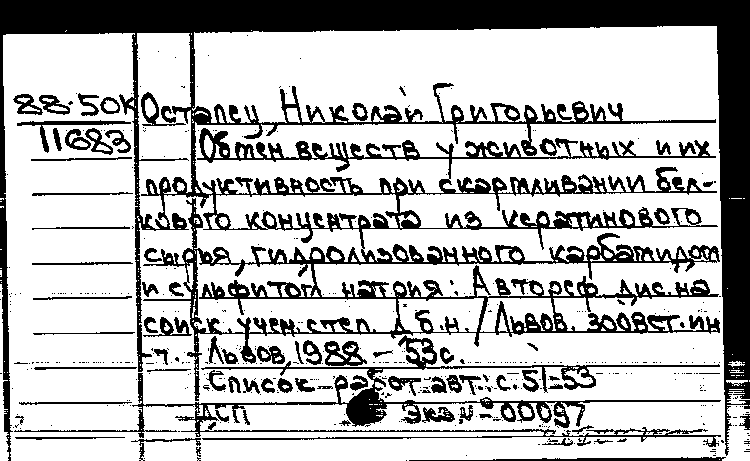 88-50К Остапец, Николай Григорьевич
11683 Обмен веществ у животных и их
продуктивность при скармливании бел-
кового концентрата из кератинового
сырья, гидролизованного карбамидом
и сульфитом натрия: Автореф. дис. на
соиск. учен. степ. д.б.н. / Львов. зоовет. ин
-т. - Львов, 1988. - 53с.
Список работ авт.: с. 51-53
ДСП Экз № 00097